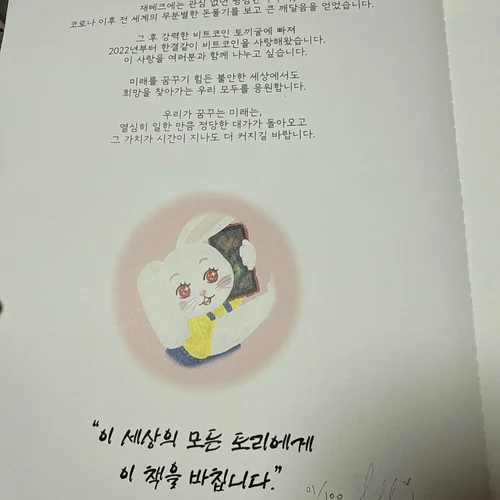 재테크에는 관심 없던 평범한
코로나 이후 전 세계의 무분별한 돈풀기를 보고 큰 깨달음을 얻었습니다.
그 후 강력한 비트코인 토끼굴에 빠져
2022년부터 한결같이 비트코인을 사랑해왔습니다.
이 사랑을 여러분과 함께 나누고 싶습니다.
미래를 꿈꾸기 힘든 불안한 세상에서도
희망을 찾아가는 우리 모두를 응원합니다.
우리가 꿈꾸는 미래는,
열심히 일한 만큼 정당한 대가가 돌아오고
그 가치가 시간이 지나도 더 커지길 바랍니다.
"이 세상의 모든 토리에게
이 책을 바칩니다."
01/100